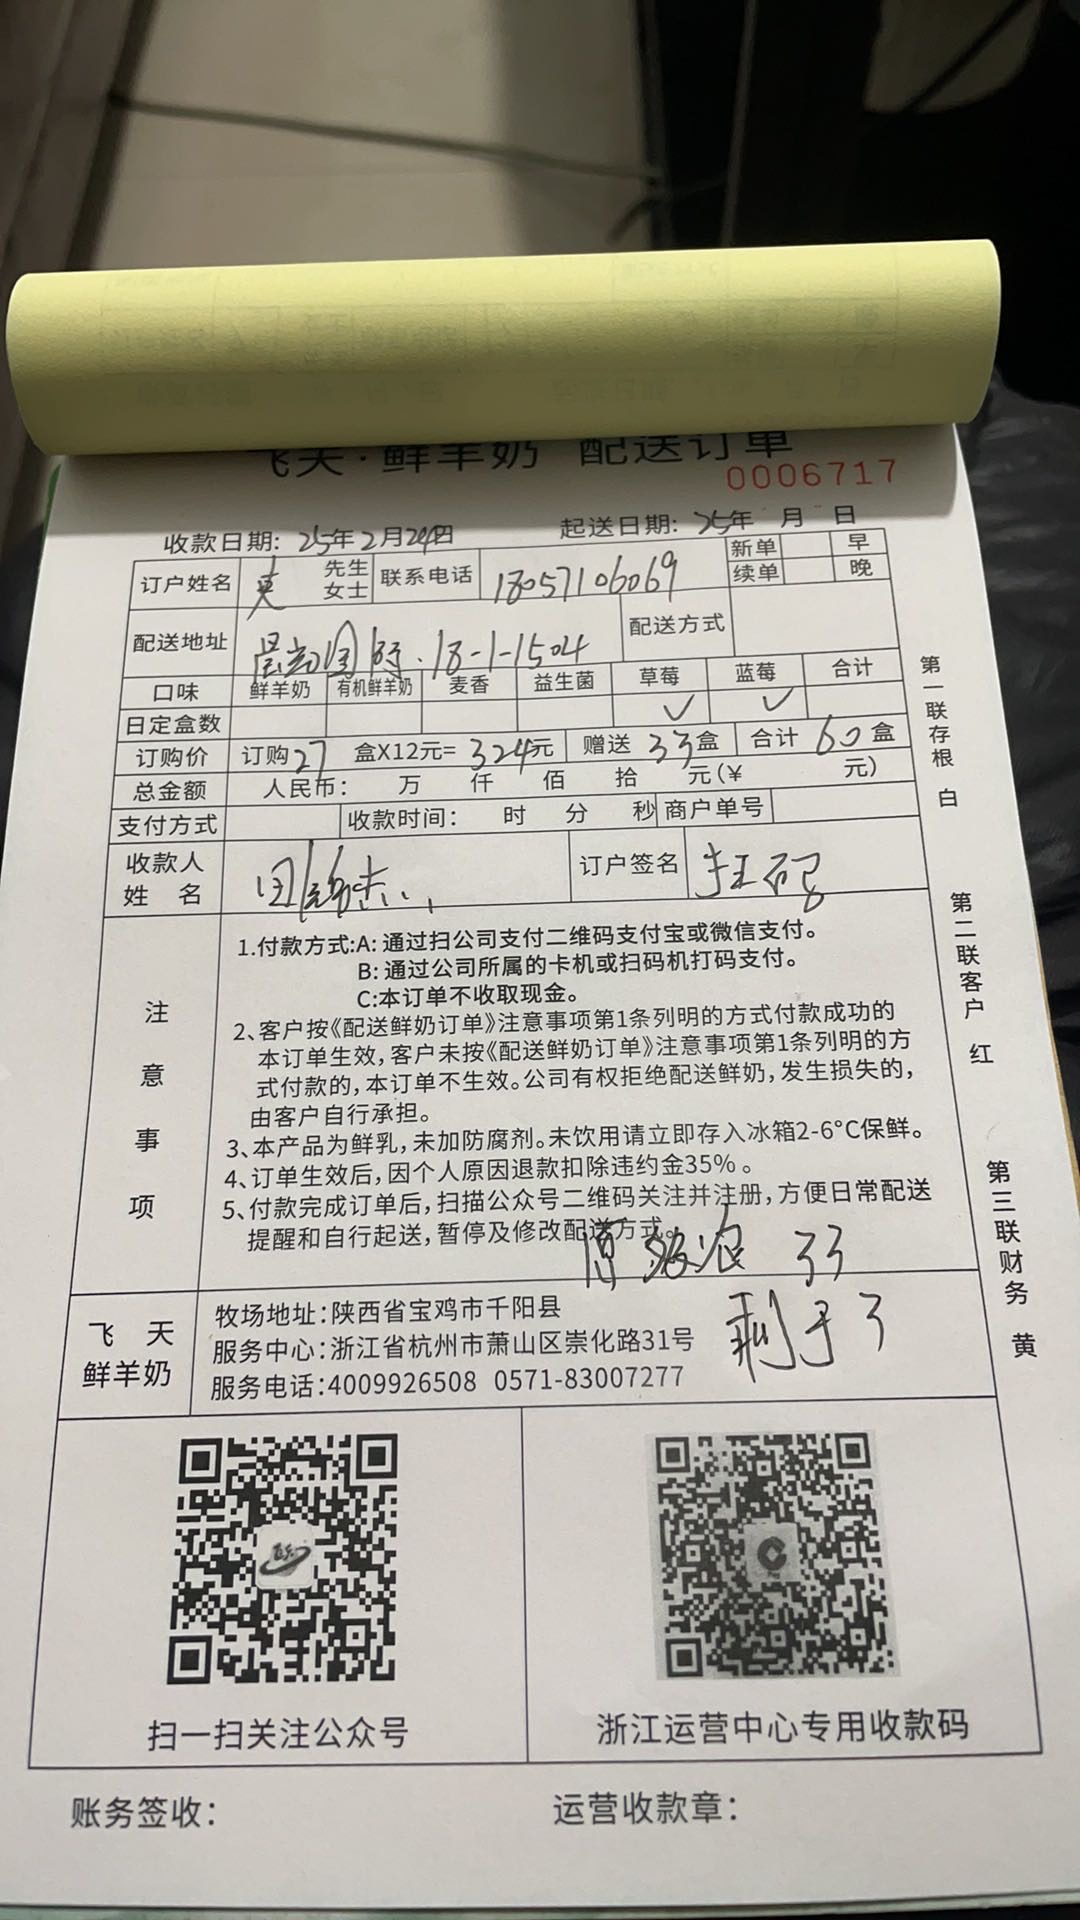 飞天·鲜羊奶 配送订单
0006717
收款日期: 25年2月24日 起送日期: 25年 月 日
订户姓名 先生 女士 联系电话 18057106069 新单 早
续单 晚
配送地址 18-1-1504 配送方式
口味 鲜羊奶 有机鲜羊奶 麦香 益生菌 草莓 蓝莓 合计
日定盒数 ✓ ✓
订购价 订购27 盒X12元= 324元 赠送 33盒 合计 60盒
总金额 人民币: 万 仟 佰 拾 元(¥ 元)
支付方式 收款时间: 时 分 秒 商户单号
收款人
姓 名 订户签名
注意事项
1.付款方式:A: 通过扫公司支付二维码支付宝或微信支付。
B: 通过公司所属的卡机或扫码机打码支付。
C:本订单不收取现金。
2、客户按《配送鲜奶订单》注意事项第1条列明的方式付款成功的
本订单生效,客户未按《配送鲜奶订单》注意事项第1条列明的方
式付款的,本订单不生效。公司有权拒绝配送鲜奶,发生损失的,
由客户自行承担。
3、本产品为鲜乳,未加防腐剂。未饮用请立即存入冰箱2-6°C保鲜。
4、订单生效后,因个人原因退款扣除违约金35%。
5、付款完成订单后,扫描公众号二维码关注并注册,方便日常配送
提醒和自行起送,暂停及修改配送方式。
33
3
飞 天
鲜羊奶
牧场地址:陕西省宝鸡市千阳县
服务中心:浙江省杭州市萧山区崇化路31号
服务电话:4009926508 0571-83007277
扫一扫关注公众号 浙江运营中心专用收款码
账务签收: 运营收款章:
第一联存根 白
第二联客户 红
第三联财务 黄